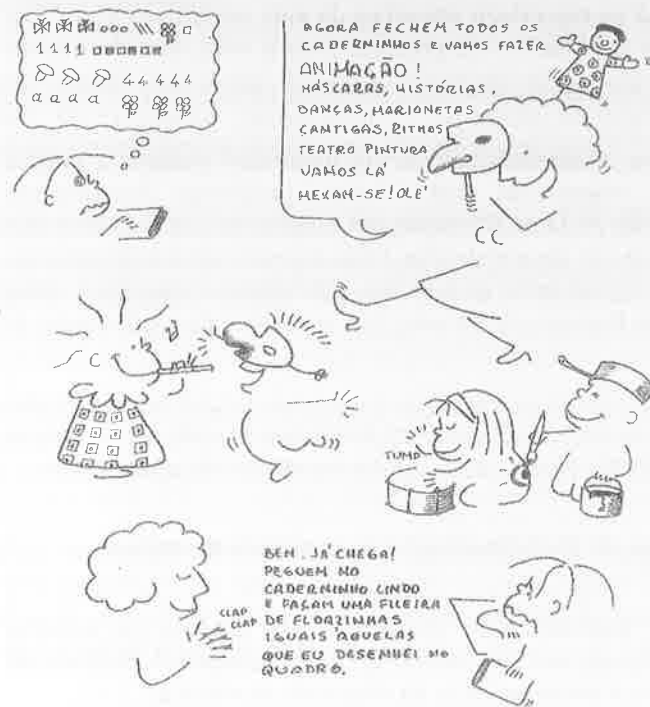 1111
4 4 4 4 4
a a a a
AGORA FECHEM TODOS OS
CADERNINHOS E VAMOS FAZER
ANIMAÇÃO!
MÁSCARAS, HISTÓRIAS,
DANÇAS, MARIONETAS
CANTIGAS, RITMOS
TEATRO PINTURA
VAMOS LÁ
MEXAM-SE! OLÉ
TUMP
CLAP
CLAP
BEM, JÁ CHEGA!
PEGUEM NO
CADERNINHO LINDO
E FAÇAM UMA FILEIRA
DE FLORZINHAS
IGUAIS ÀQUELAS
QUE EU DESENHEI NO
QUADRO.